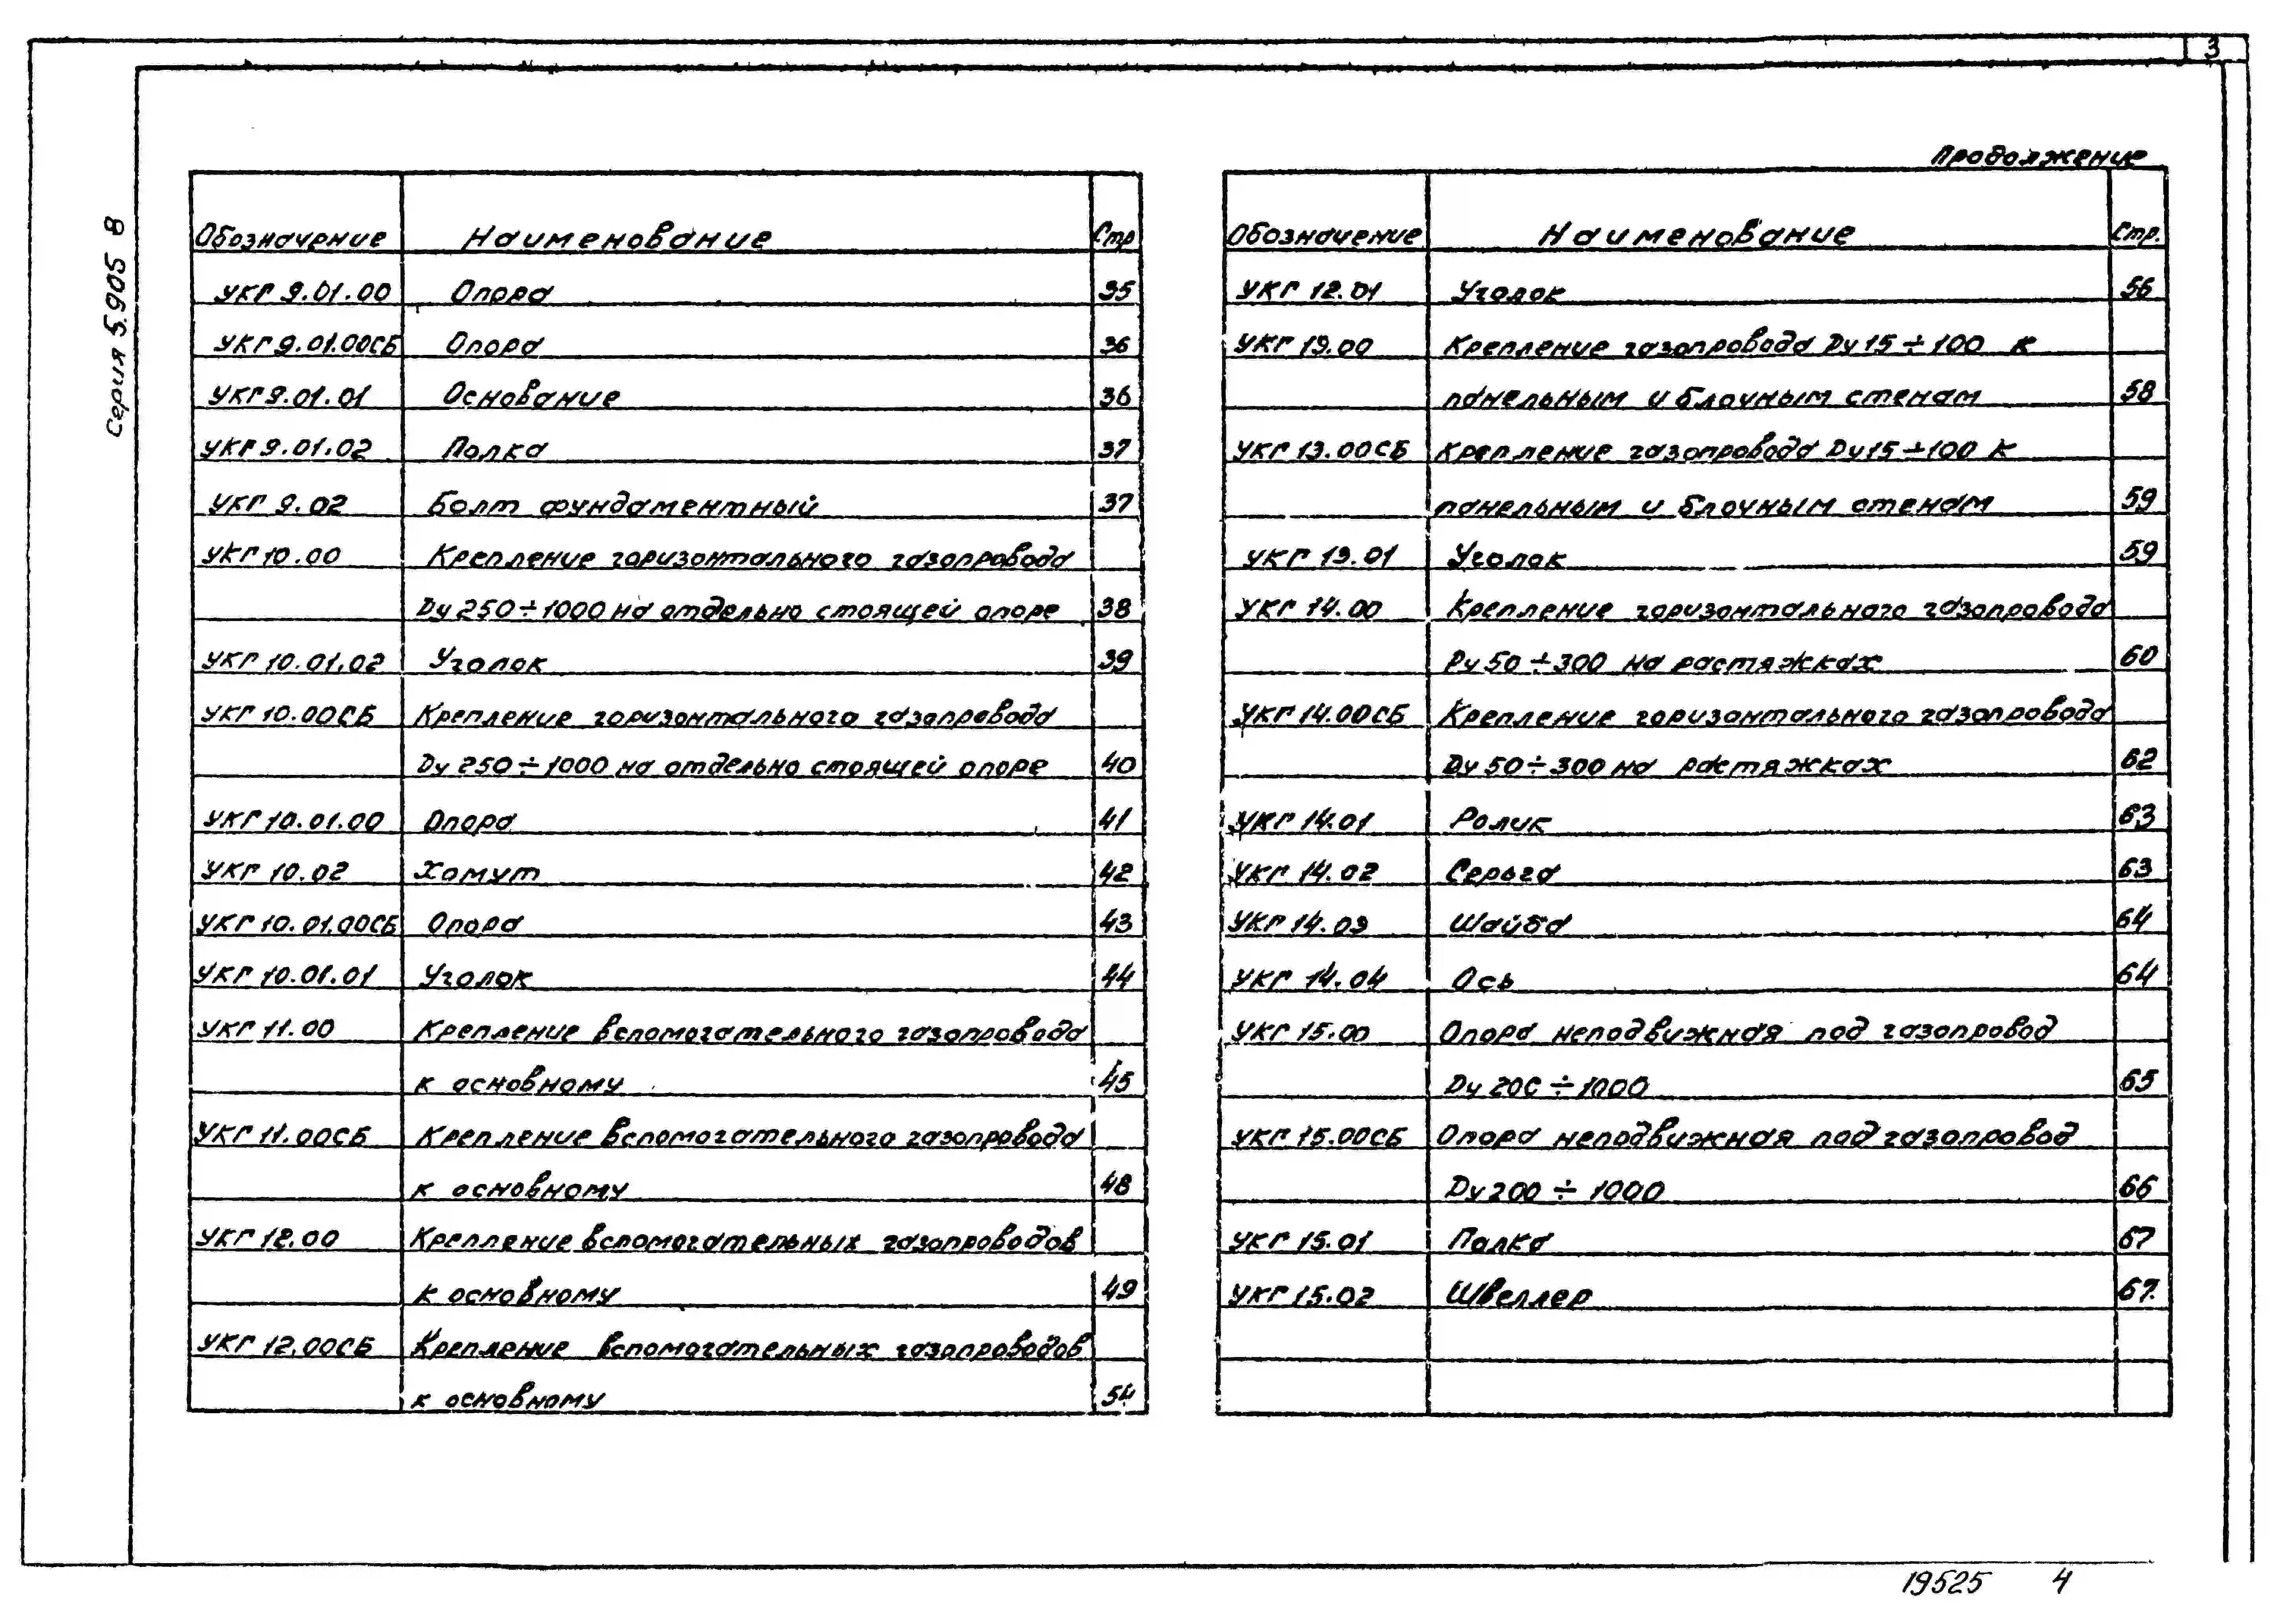 3
Продолжение
Серия 5.905 8
Обозначение Наименование Стр
УКГ 9.01.00 Опора 35
УКГ 9.01.00СБ Опора 36
УКГ 9.01.01 Основание 36
УКГ 9.01.02 Полка 37
УКГ 9.02 Болт фундаментный 37
УКГ 10.00 Крепление горизонтального газопровода
Ду 250÷1000 на отдельно стоящей опоре 38
УКГ 10.01.02 Уголок 39
УКГ 10.00СБ Крепление горизонтального газопровода
Ду 250÷1000 на отдельно стоящей опоре 40
УКГ 10.01.00 Опора 41
УКГ 10.02 Хомут 42
УКГ 10.01.00СБ Опора 43
УКГ 10.01.01 Уголок 44
УКГ 11.00 Крепление вспомогательного газопровода
к основному 45
УКГ 11.00СБ Крепление вспомогательного газопровода
к основному 48
УКГ 12.00 Крепление вспомогательных газопроводов
к основному 49
УКГ 12.00СБ Крепление вспомогательных газопроводов
к основному 54
Обозначение Наименование Стр.
УКГ 12.01 Уголок 56
УКГ 13.00 Крепление газопровода Ду 15÷100 к
панельным и блочным стенам 58
УКГ 13.00СБ Крепление газопровода Ду 15÷100 к
панельным и блочным стенам 59
УКГ 13.01 Уголок 59
УКГ 14.00 Крепление горизонтального газопровода
Ду 50÷300 на растяжках 60
УКГ 14.00СБ Крепление горизонтального газопровода
Ду 50÷300 на растяжках 62
УКГ 14.01 Ролик 63
УКГ 14.02 Серьга 63
УКГ 14.03 Шайба 64
УКГ 14.04 Ось 64
УКГ 15.00 Опора неподвижная под газопровод
Ду 200÷1000 65
УКГ 15.00СБ Опора неподвижная под газопровод
Ду 200÷1000 66
УКГ 15.01 Полка 67
УКГ 15.02 Швеллер 67.
19525 4